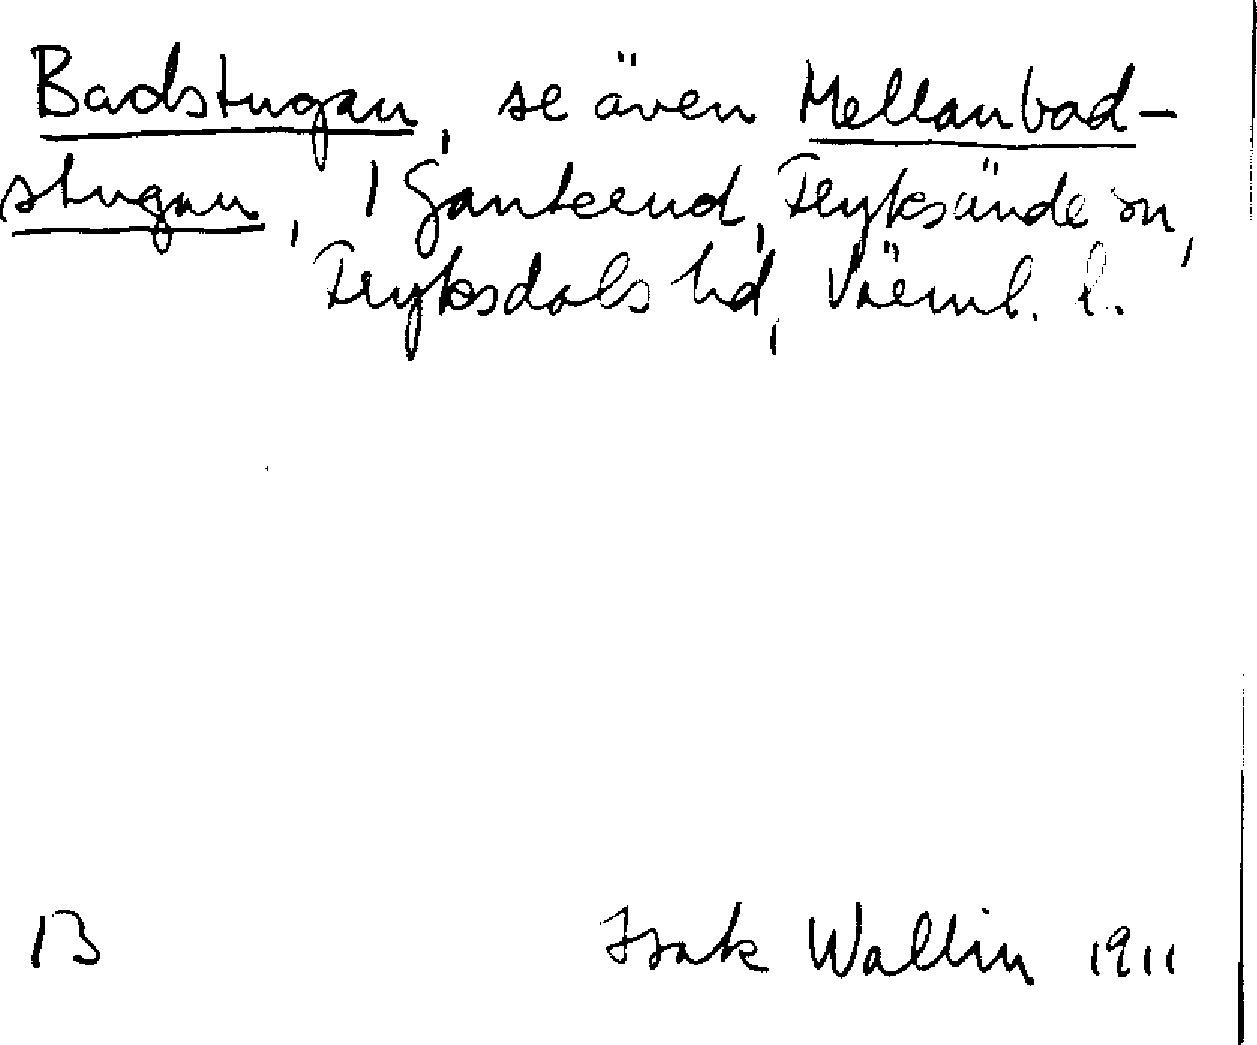 Badstugan, se även Mellanbad-
stugan, 1 Gunterud, Fryksände sn,
Fryksdals hd, Värml. l.
B Isak Wallin 1911